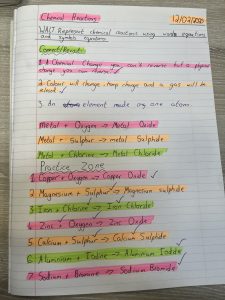 Chemical Reactions 12/02/2020
WALT: Represent chemical reactions using word equations
and symbols equations
Correct/Revisit:
1. A Chemical Change you can't reverse but a physical
change you can reverse.
2. Colour will change, temp change and a gas will be
3. An element made one atom.
Metal + Oxygen → Metal Oxide
Metal + Sulphur → metal Sulphide
Metal + Chlorine → Metal Chloride
Practice Zone
1. Copper + Oxygen → Copper Oxide
2. Magnesium + Sulphur → Magnesium sulphide
3. Iron + Chlorine → Iron Chloride
4. Zinc + Oxygen → Zinc Oxide
5. Calcium + Sulphur → Calcium Sulphide
6. Aluminium + Iodine → Aluminium Iodide
7. Sodium + Bromine → Sodium Bromide